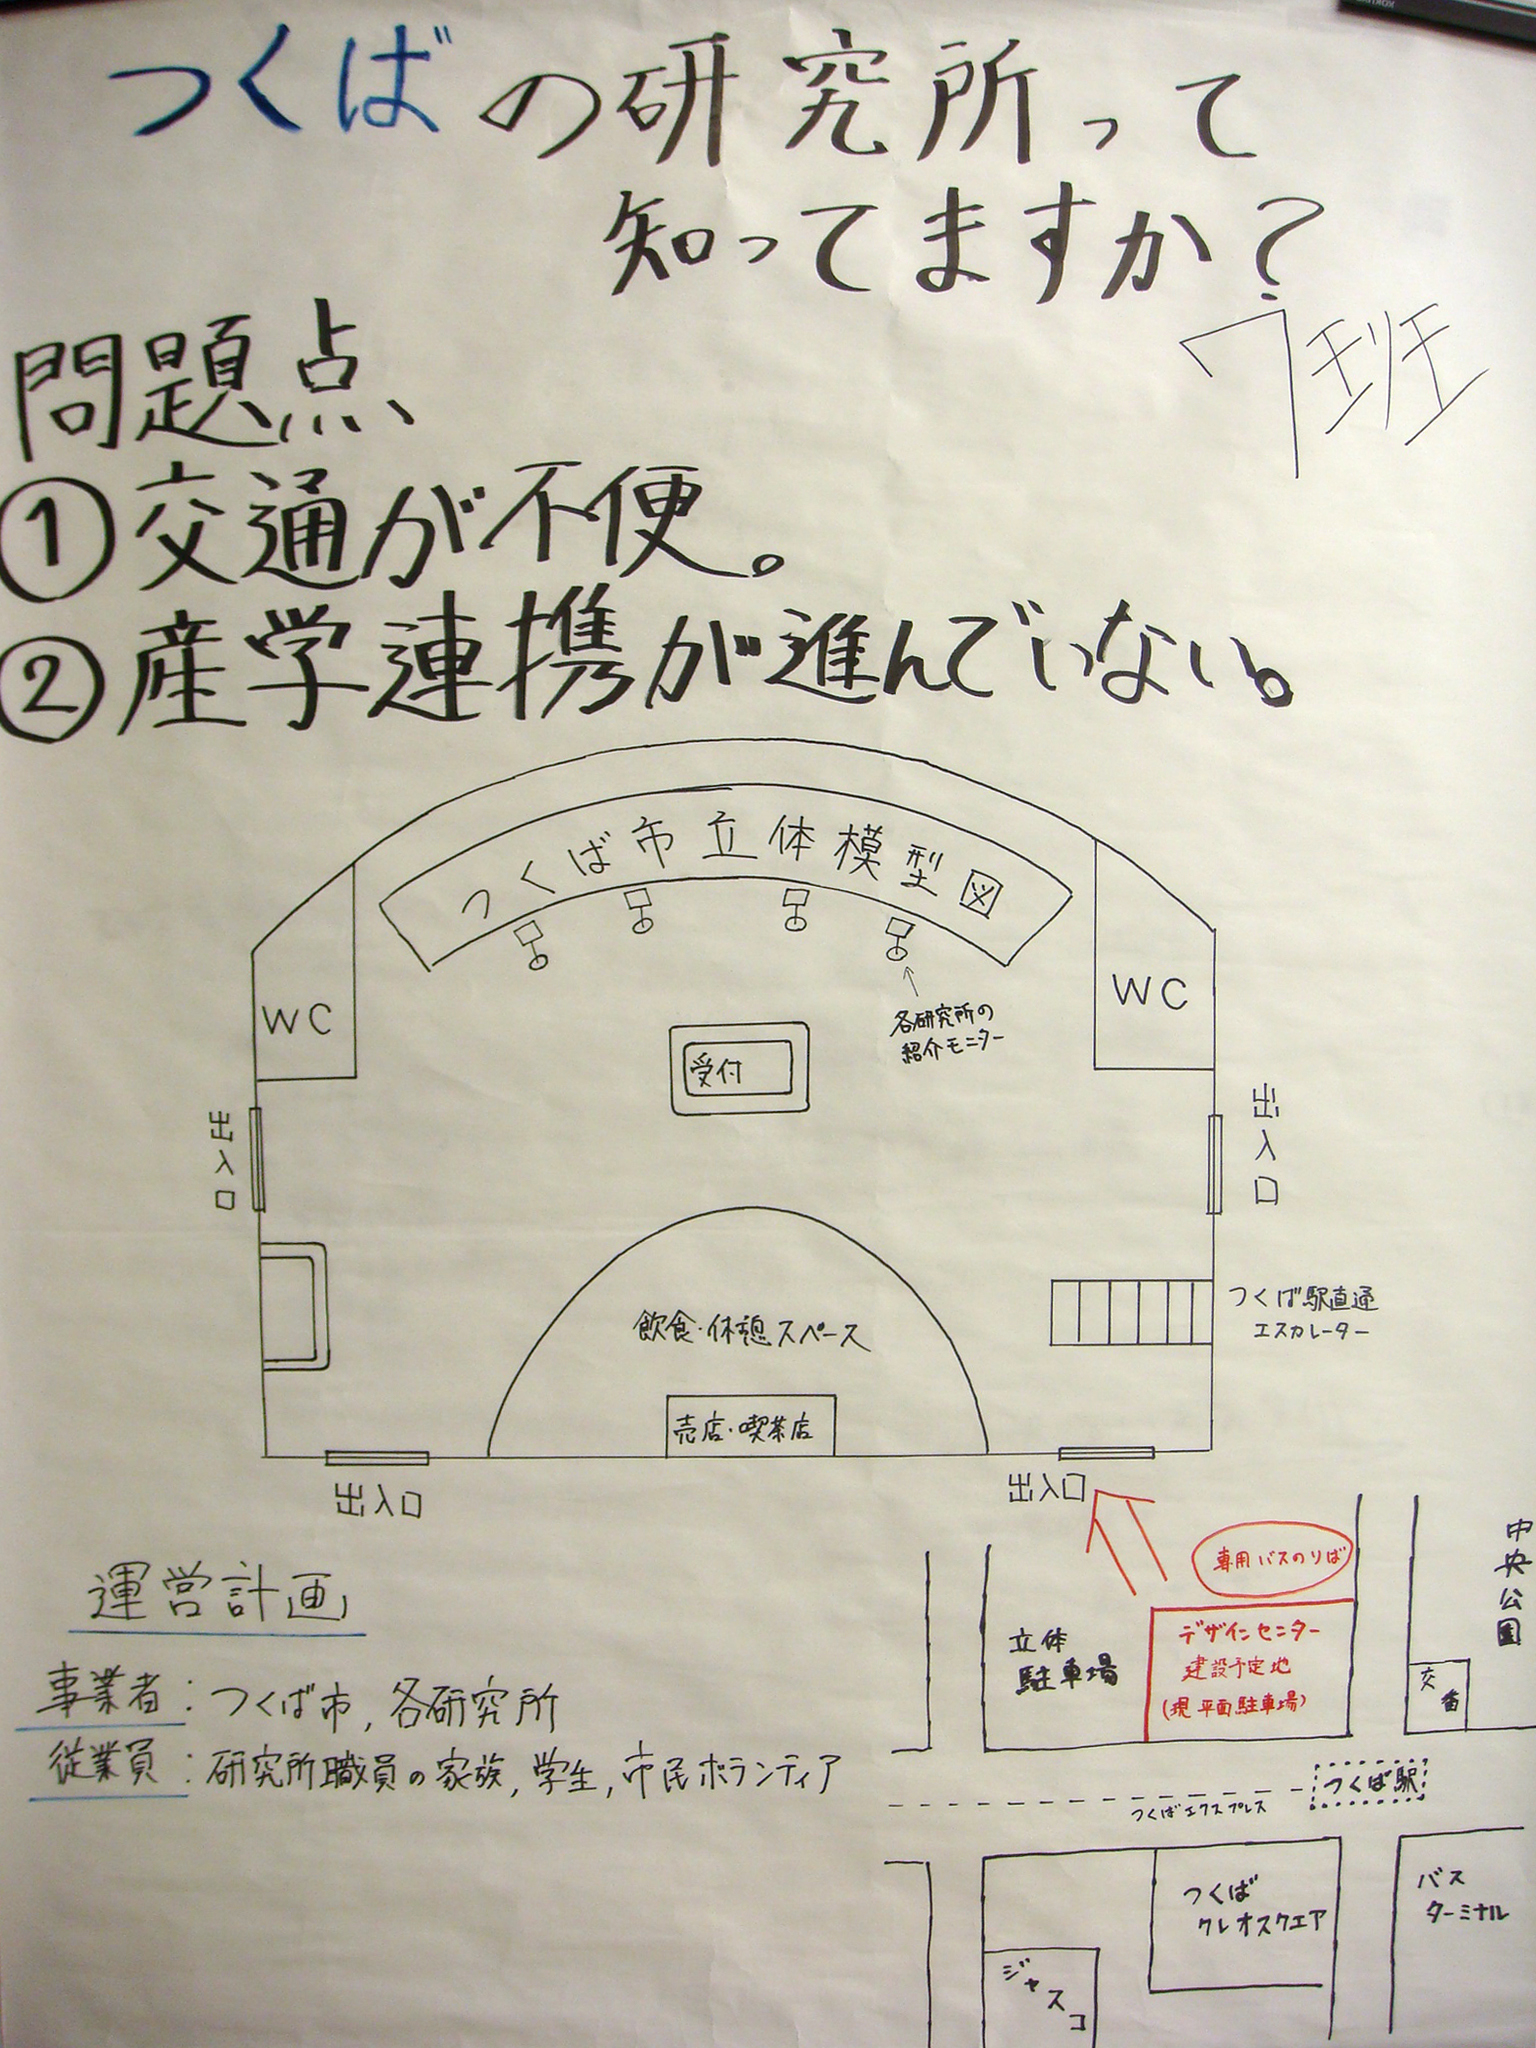 つくばの研究所って
知ってますか?
7班
問題点
①交通が不便。
②産学連携が進んでいない。
つくば市立体模型図
WC
WC
各研究所の
紹介モニター
受付
出入口
出入口
飲食・休憩スペース
売店・喫茶店
つくば駅直通
エスカレーター
出入口
出入口
運営計画
事業者:つくば市,各研究所
従業員:研究所職員の家族,学生,市民ボランティア
専用バスのりば
中央公園
立体
駐車場
デザインセンター
建設予定地
(現平面駐車場)
交番
つくば駅
つくばエクスプレス
つくば
クレオスクエア
バス
ターミナル
ジャスコ